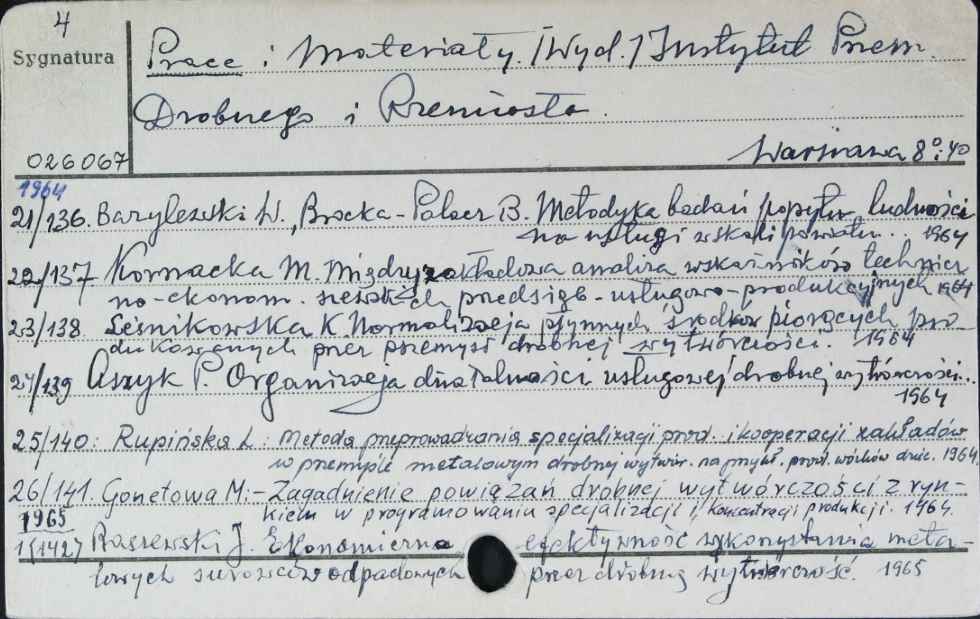 4
Sygnatura
Prace i Materiały. /Wyd./ Instytut Przem.
Drobnego i Rzemiosła.
026067
Warszawa 8°: 40
1964
21/136. Barylewski W., B. Metodyka badań popytu ludności
na usługi w skali powiatu. 1964
22/137 Kornacka M. Międzyzakładowa analiza wskaźników technicz
no-ekonom. przedsięb-usługowo-produkcyjnych 1964
23/138 Leśnikowska K. Normalizacja płynnych środków piorących pro
dukowanych przez przemysł drobnej wytwórczości. 1964
24/139 Aszyk P. Organizacja działalności usługowej drobnej wytwórczości.
1964
25/140: Rupińska L: Metoda przeprowadzania specjalizacji prod. i kooperacji zakładów
w przemyśle metalowym drobnej wytwór. na przykł. prod. wózków dziec. 1964.
26/141. Gonetowa M:- Zagadnienie powiązań drobnej wytwórczości z ryn-
kiem w programowaniu specjalizacji i koncentracji produkcji. 1964.
1965
1(142) Raszewski J. efektywność wykorzystania meta-
lowych surowców odpadowych przez drobną wytwórczość. 1965